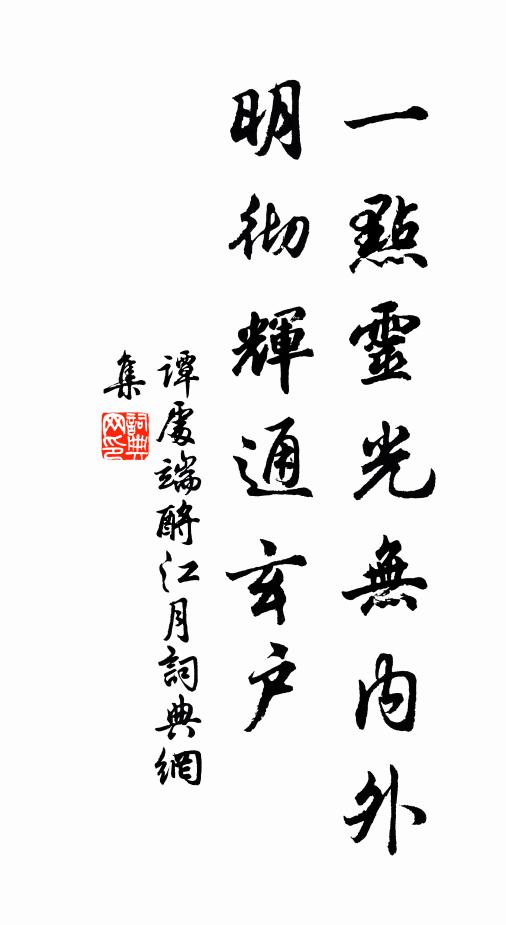 一點靈光無內外
明徹輝通玄户
譚處端酹江月詞典網
集
詞典
网印